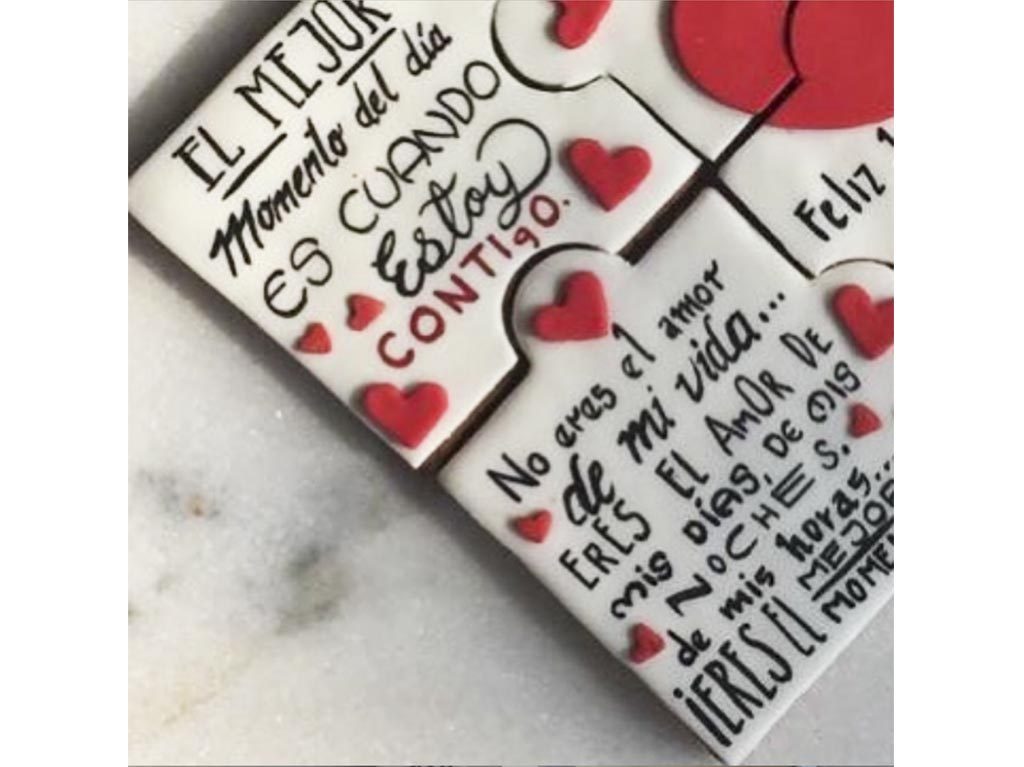 EL MEJOR
Momento del día
ES CUANDO
Estoy
CONTIGO.
Feliz 1
No eres el amor
de mi vida...
ERES EL AMOR DE
mis DÍAS, DE MIS
NOCHES.
de mis horas...
¡ERES EL MEJOR